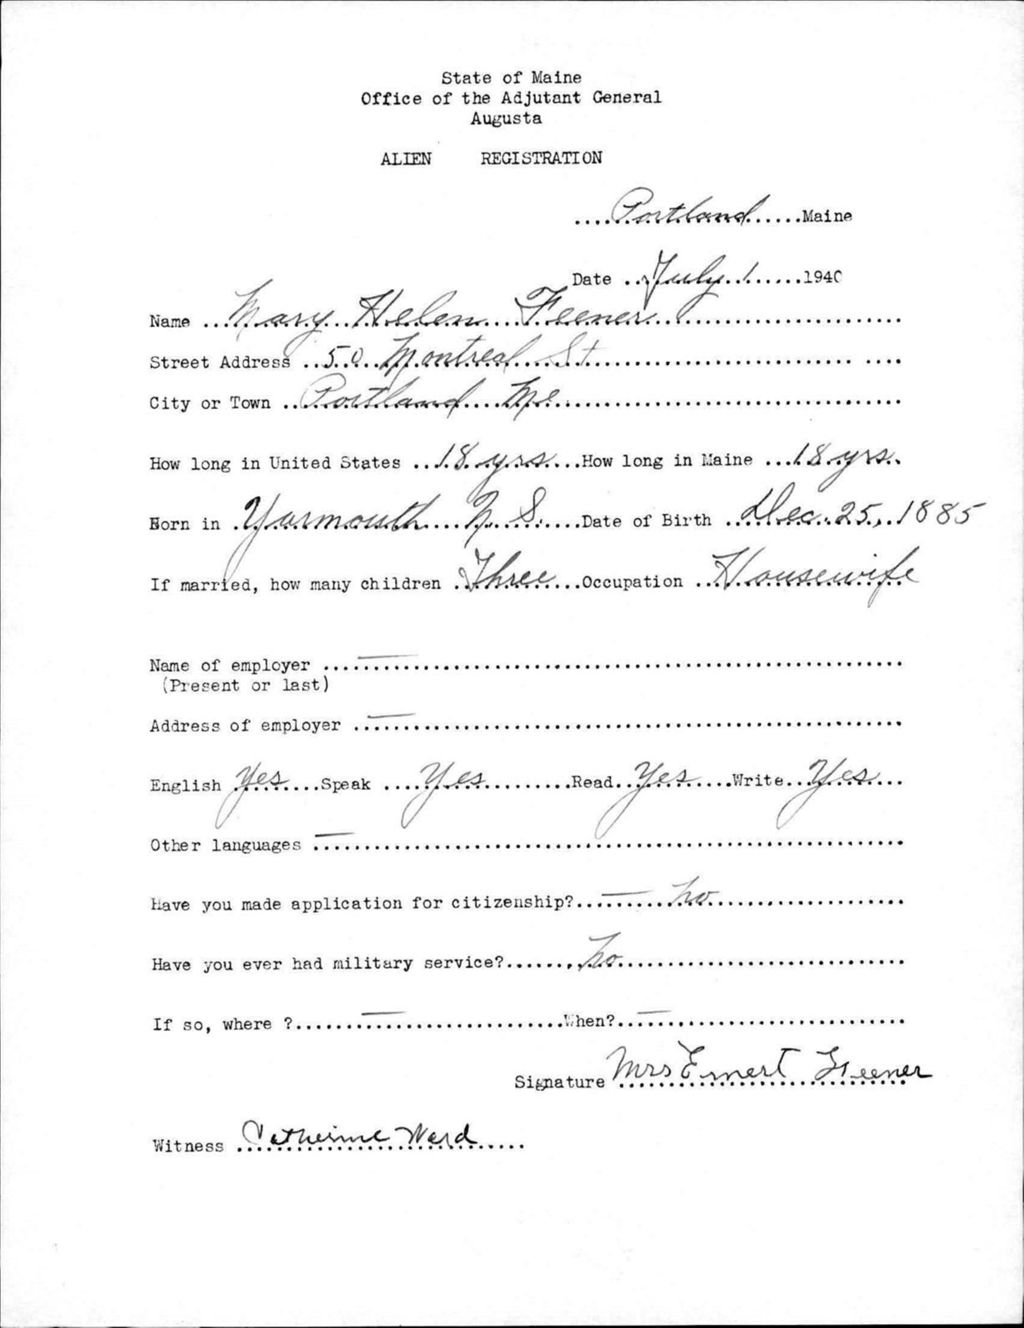 State of Maine
Office of the Adjutant General
Augusta
ALIEN REGISTRATION
....Portland......Maine
Date ..July 1......1940
Name ...Mary Helen Feener...
Street Address ..50 Montreal St...
City or Town ..Portland Me...
How long in United States ..18 yrs...How long in Maine ...18 yrs.
Born in .Yarmouth N. S....Date of Birth ..Dec. 25, 1885
If married, how many children .Three...Occupation ..Housewife
Name of employer ...—...
(Present or last)
Address of employer ...—...
English Yes....Speak ....Yes...Read..Yes....Write..Yes...
Other languages —...
Have you made application for citizenship?...—...No...
Have you ever had military service?...No...
If so, where ?...—...When?...—...
Signature Mrs Ernest Feener
Witness Catherine Ward...